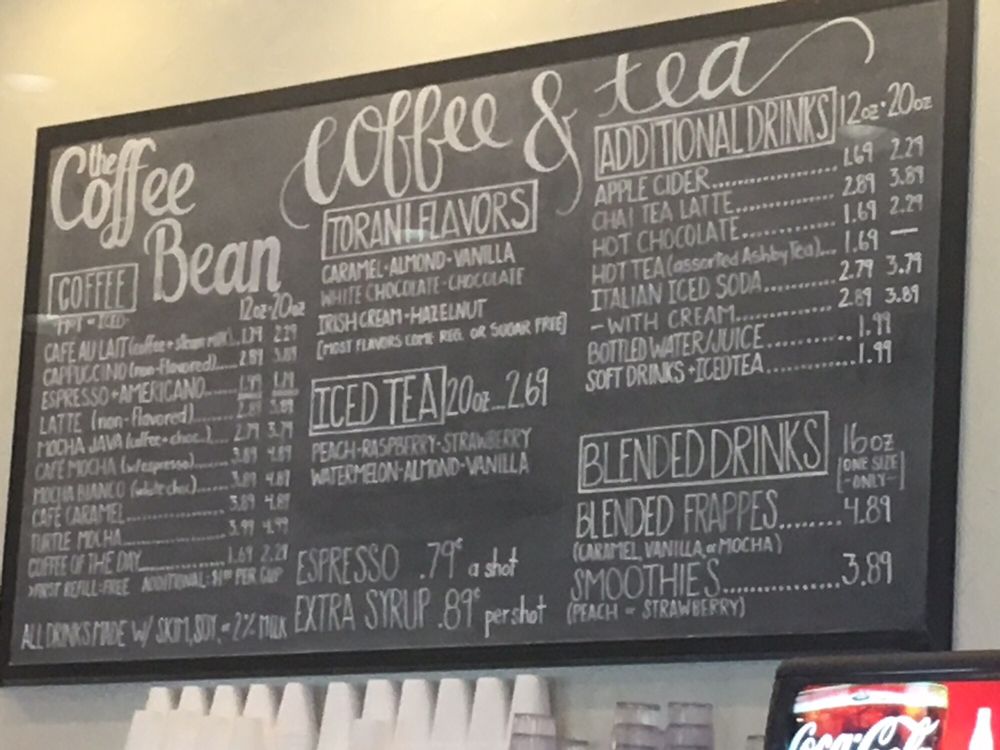 Coffee & tea
the Coffee Bean
COFFEE
HOT or ICED 12oz • 20oz
CAFE AU LAIT (coffee + steam milk) 1.79 2.29
CAPPUCCINO (non-flavored) 2.89 3.89
ESPRESSO + AMERICANO
LATTE (non-flavored) 2.89 3.89
MOCHA JAVA (coffee + choc.) 2.79 3.79
CAFÉ MOCHA (w/espresso) 3.89 4.89
MOCHA BIANCO (white choc) 3.89 4.89
CAFÉ CARAMEL 3.89 4.89
TURTLE MOCHA 3.99 4.99
COFFEE OF THE DAY 1.69 2.29
>FIRST REFILL=FREE ADDITIONAL: $1⁰⁰ PER CUP
ALL DRINKS MADE W/ SKIM, SOY, or 2% MILK
TORANI FLAVORS
CARAMEL-ALMOND-VANILLA
WHITE CHOCOLATE-CHOCOLATE
IRISH CREAM-HAZELNUT
[MOST FLAVORS COME REG. OR SUGAR FREE]
ICED TEA 20oz...2.69
PEACH-RASPBERRY-STRAWBERRY
WATERMELON-ALMOND-VANILLA
ESPRESSO .79¢ a shot
EXTRA SYRUP .89¢ per shot
ADDITIONAL DRINKS 12oz • 20oz
APPLE CIDER 1.69 2.29
CHAI TEA LATTE 2.89 3.89
HOT CHOCOLATE 1.69 2.29
HOT TEA (assorted Ashby Tea) 1.69 —
ITALIAN ICED SODA 2.79 3.79
- WITH CREAM 2.89 3.89
BOTTLED WATER/JUICE 1.99
SOFT DRINKS + ICED TEA 1.99
BLENDED DRINKS 16oz
[ONE SIZE
-ONLY-]
BLENDED FRAPPES 4.89
(CARAMEL, VANILLA, or MOCHA)
SMOOTHIES 3.89
(PEACH or STRAWBERRY)
Coca-Cola